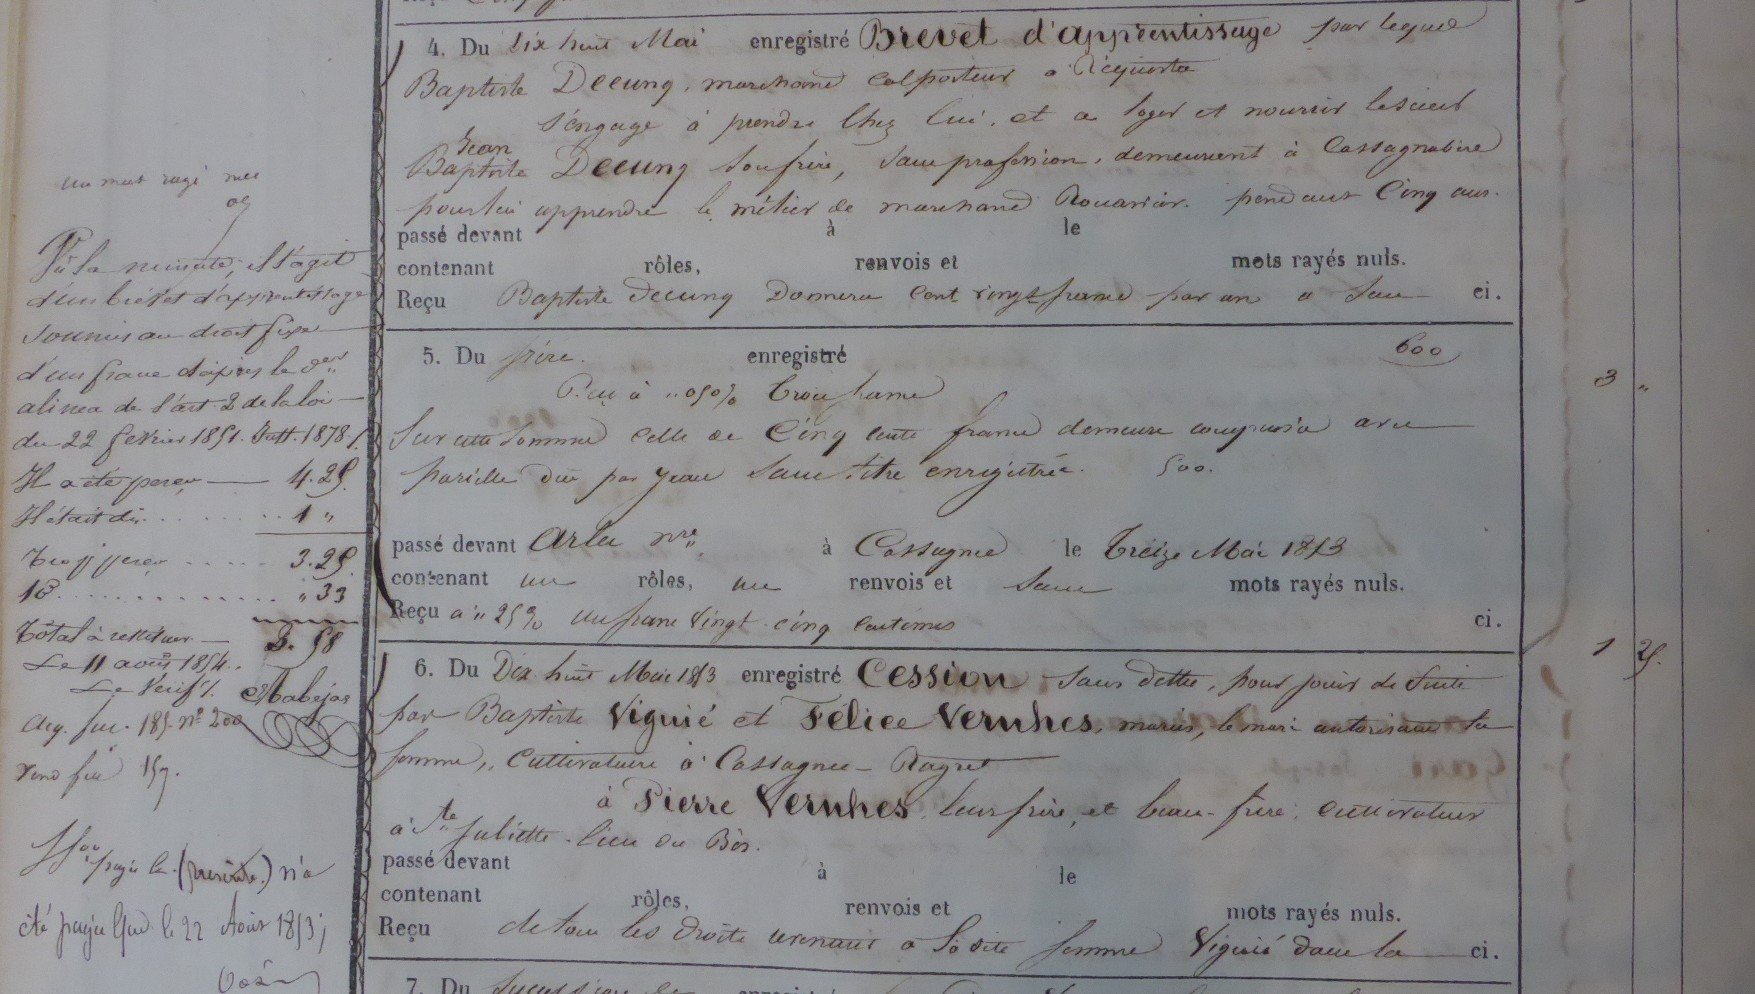 4. Du Dix huit Mai enregistré Brevet d'apprentissage par lequel
Baptiste Decung, marchand colporteur à Requista
s'engage à prendre chez lui, et a loger et nourrir le sieur
Jean
Baptiste Decung son frère, sans profession, demeurant à Cassagnabère
pour lui apprendre le métier de marchand Rouanier. pendant Cinq ans.
passé devant à le
contenant rôles, renvois et mots rayés nuls.
Reçu Baptiste Decung Donnera Cent vingt francs par an a Son ci.
5. Du frère. enregistré 600
Reçu à ,, 050% Trois francs
3 ,,
Sur cette Somme Celle de Cinq cents francs demeure compensée avec
pareille due par Jean Sans titre enregistré. 500.
passé devant Arla nre à Cassagnes le Treize Mai 1853
contenant un rôles, un renvois et Sans mots rayés nuls.
Reçu a ,, 25% un franc Vingt-cinq centimes ci.
1 25.
6. Du Dix huit Mai 1853 enregistré Cession Sans dette, pour jouir de Suite
par Baptiste Viguié et Félice Vernhes, mariés, le mari autorisant la
femme, Cultivateurs à Cassagnes-
à Pierre Vernhes, leur frère, et beau-frère, cultivateur
à Ste Juliette. lieu du Bès.
passé devant à le
contenant rôles, renvois et mots rayés nuls.
Reçu de tous les droits revenant a la dite femme Viguié dans la ci.
7. Du Succession de enregistré
un mot rayé nul
Vu la minute, il s'agit
d'un brevet d'apprentissage
soumis au droit fixe
d'un franc d'après le der
alinéa de l'art 2 de la loi
du 22 février 1851. 1878.
Il a été perçu 4.25.
Il était dû 1 ,,
Trop perçu 3.25.
10e ,, 33
Total à restituer 3.58
Le 11 août 1854.
Le Vérifr.
payé le n'a
été payé que le 22 Août 1853;